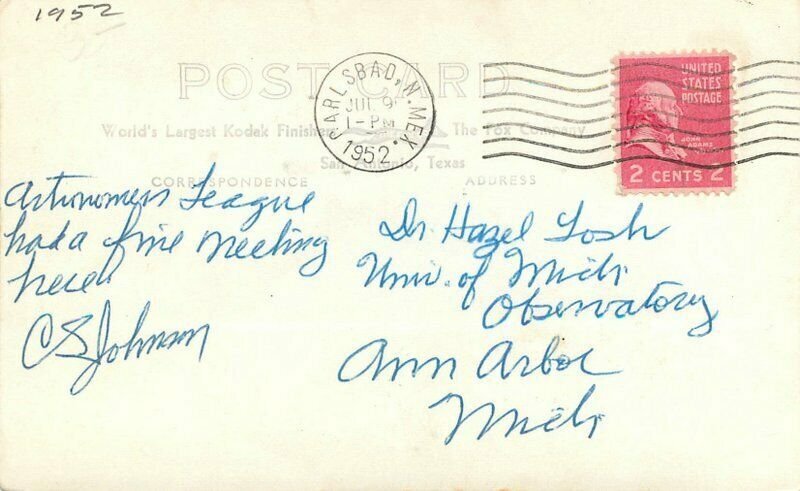 1952
POST CARD
CARLSBAD, N. MEX.
JUL 9
1-PM
1952
UNITED
STATES
POSTAGE
JOHN
ADAMS
2 CENTS 2
World's Largest Kodak Finishers
The Fox Company
San Antonio, Texas
CORRESPONDENCE
ADDRESS
Astronomers League
had a fine meeting
here.
CS Johnson
Dr Hazel Losh
Univ. of Mich
Observatory
Ann Arbor
Mich